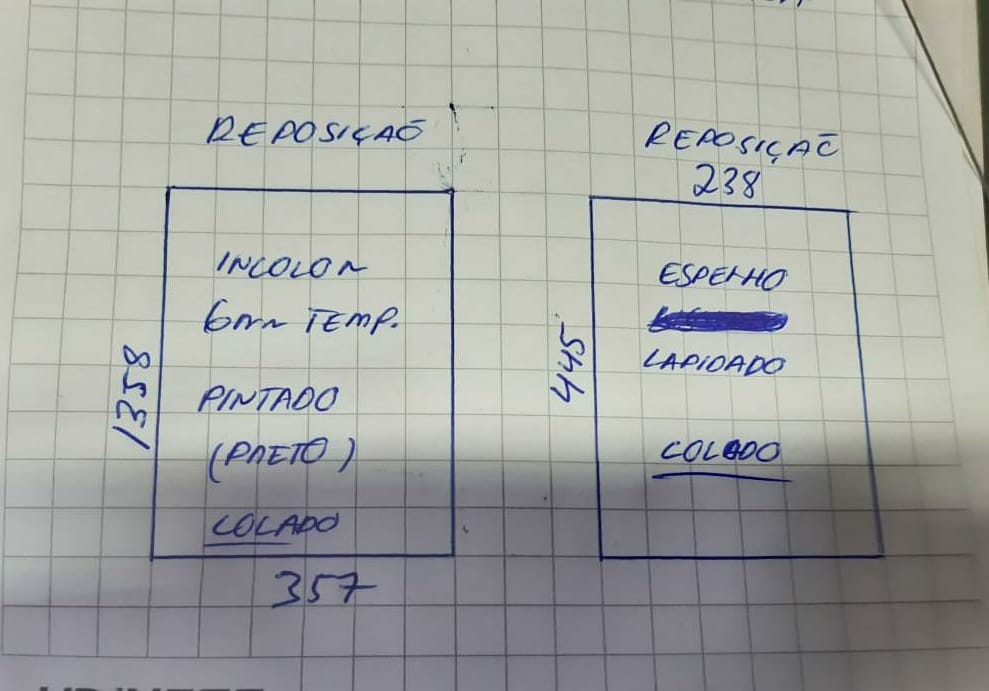 REPOSIÇAÕ
INCOLOR
6mm TEMP.
PINTADO
(PRETO)
COLADO
1358
357
REPOSIÇAÕ
238
ESPELHO
LAPIDADO
COLADO
445